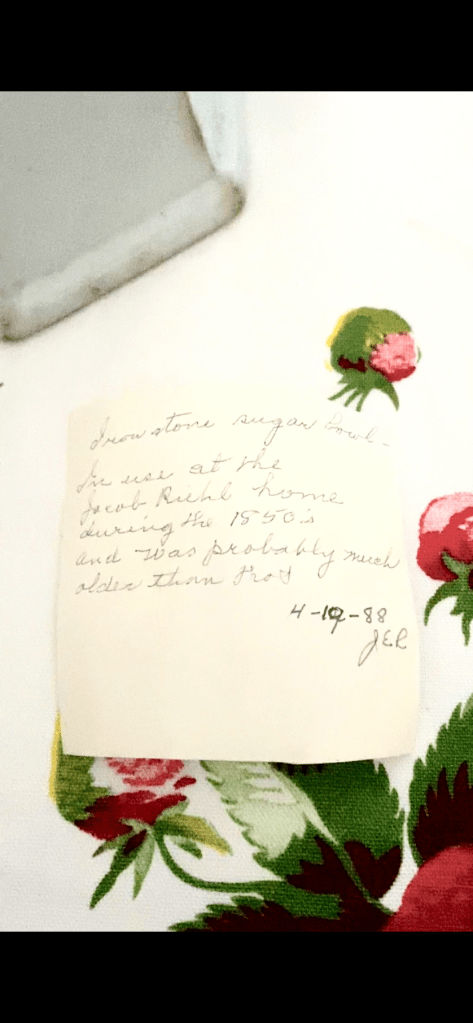 Iron stone sugar bowl -
In use at the
Jacob Riehl home
during the 1850's
and was probably much
older than that
4-19-88
JER